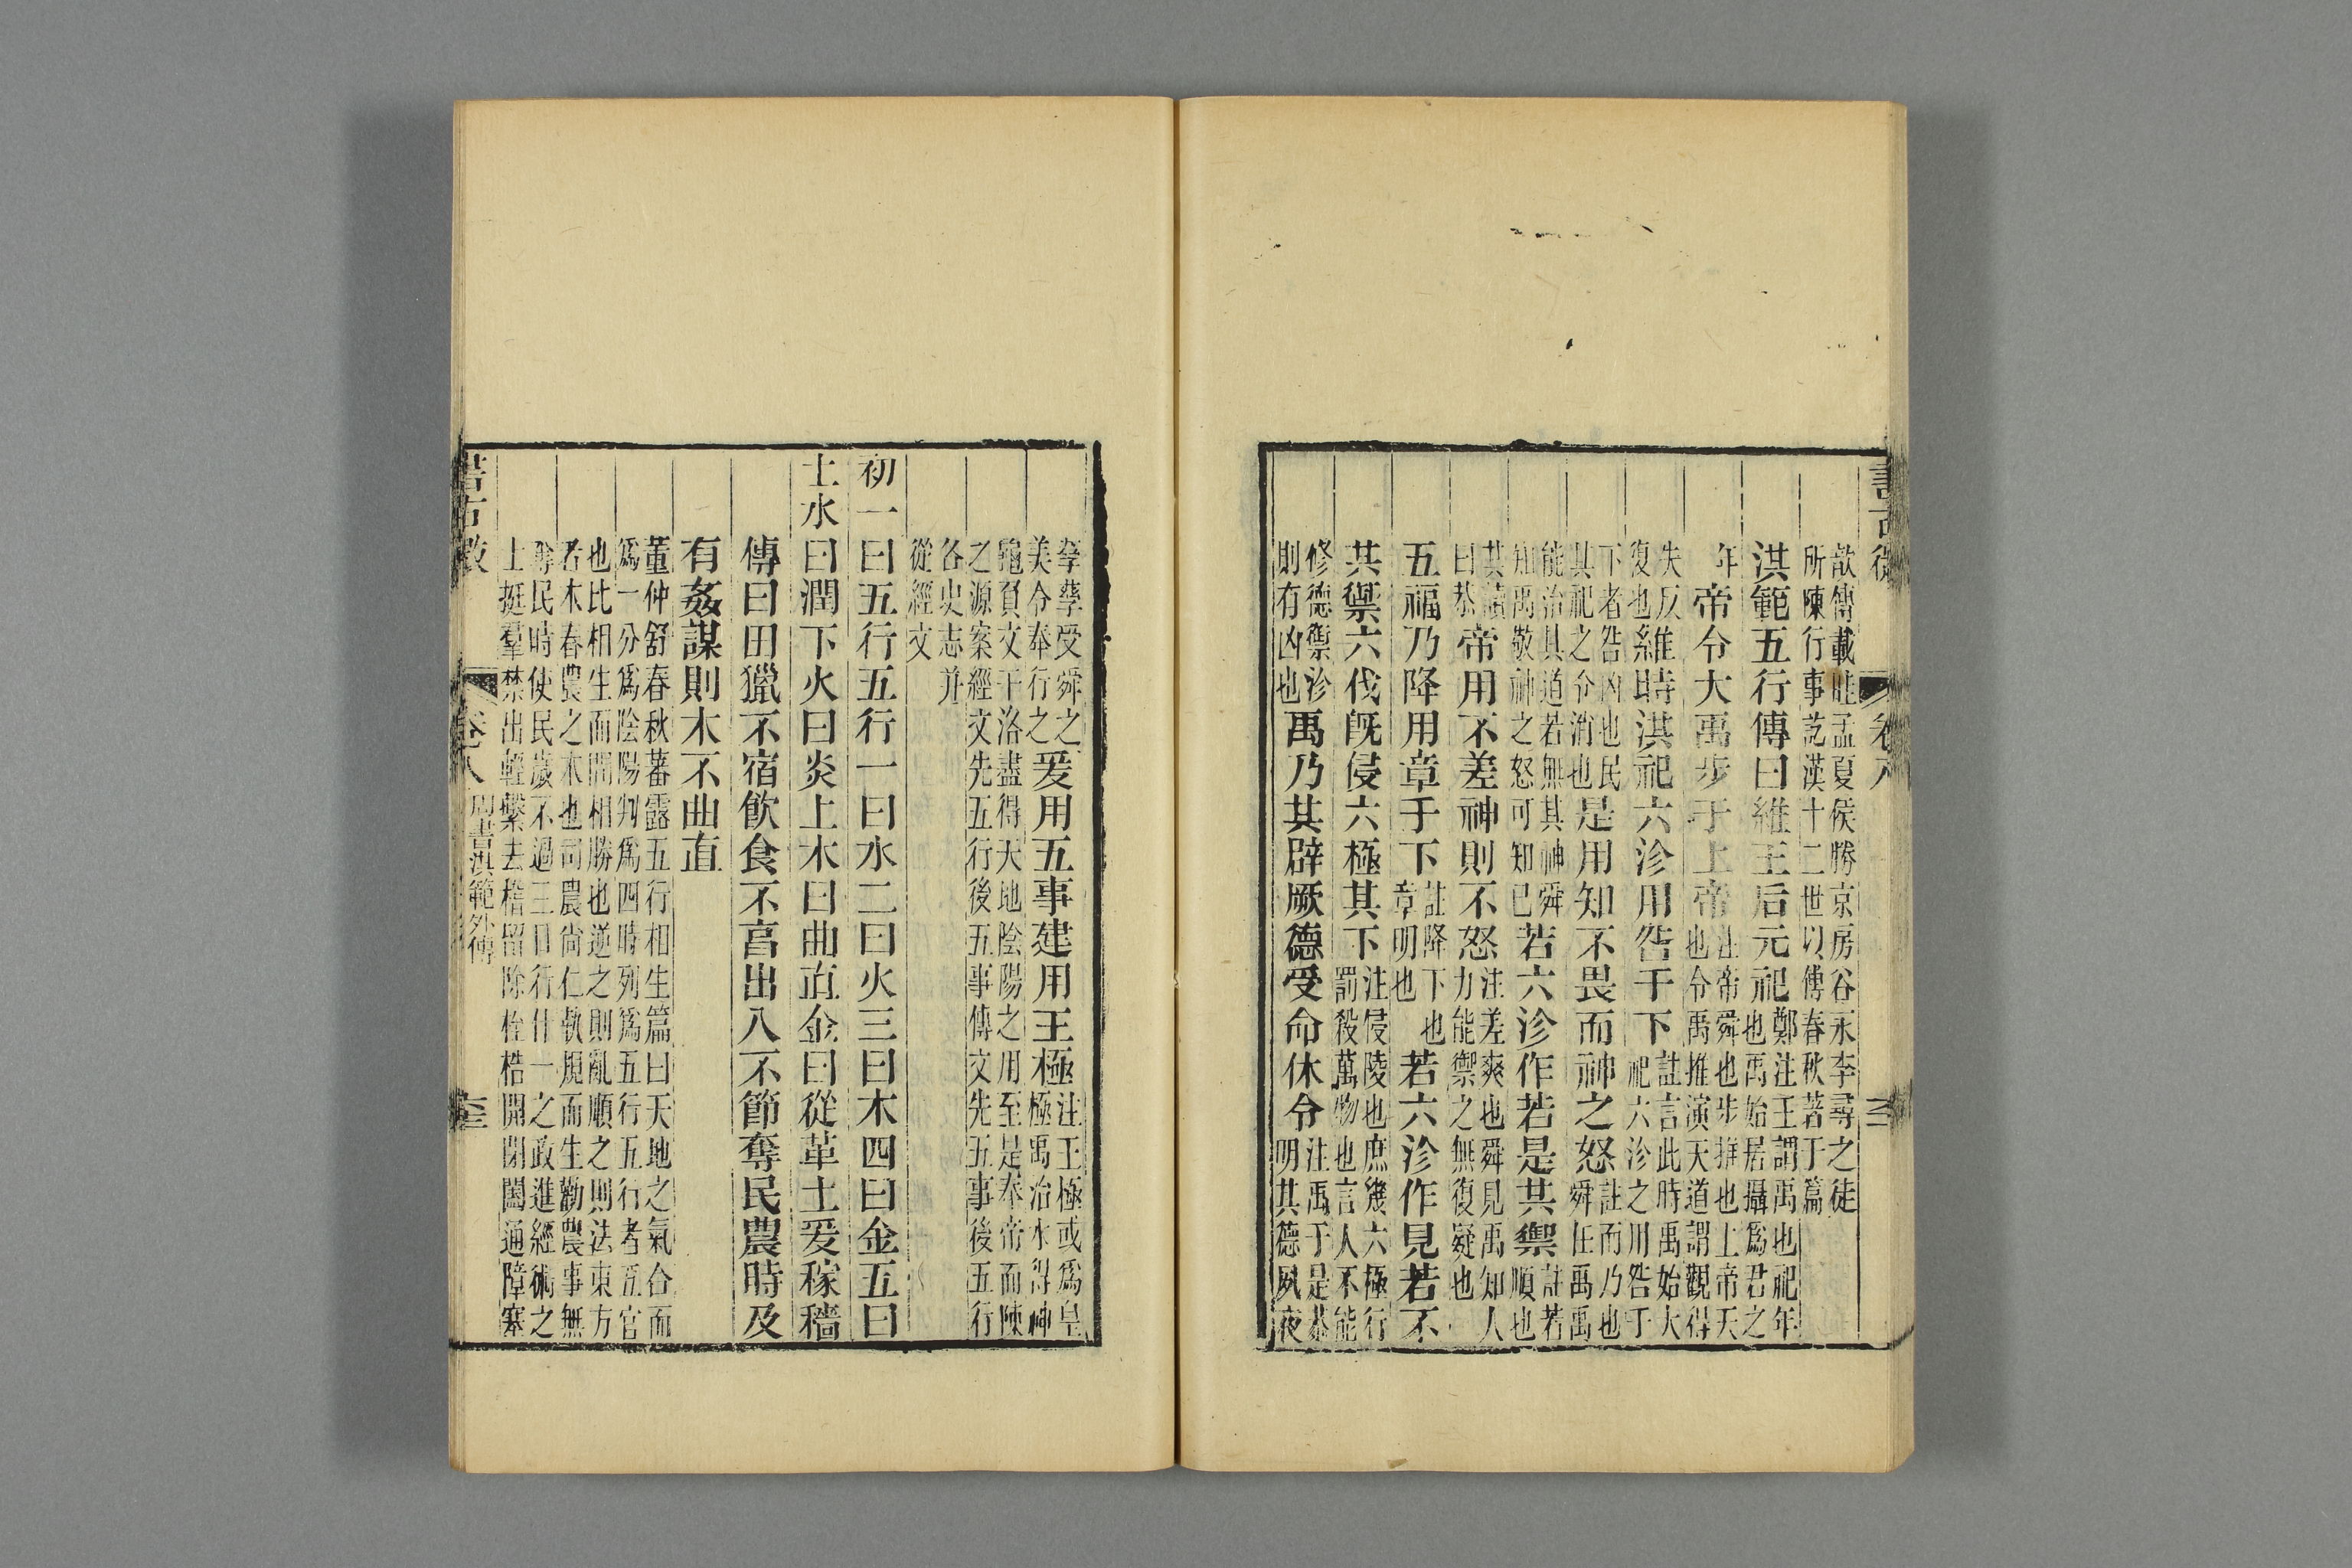 書古微 卷八
歆傳載眭孟夏侯勝京房谷永李尋之徒
所陳行事訖漢十二世以傳春秋著于篇
洪範五行傳曰維王后元祀鄭注王謂禹也祀年
也禹始居攝爲君之
年帝令大禹步于上帝注帝舜也步推也上帝天
也令禹推演天道謂觀得
失反
復也維時洪祀六沴用咎于下註言此時禹始大
祀六沴之用咎于
下者咎凶也民
其祀之令消也是用知不畏而神之怒註而乃也
舜任禹禹
能治其道若無其神舜
知禹敬神之怒可知已若六沴作若是共禦註若
順也
其讀
曰恭帝用不差神則不怒注差爽也舜見禹知人
力能禦之無復疑也
五福乃降用章于下註降下也
章明也若六沴作見若不
共禦六伐旣侵六極其下注侵陵也庶幾六極行
罰殺萬物也言人不能
修德禦沴
則有凶也禹乃其辟厥德受命休令注禹于是恭
明其德夙夜
孳孳受舜之
美令奉行之爰用五事建用王極注王極或爲皇
極禹治水得神
龜負文于洛盡得天地陰陽之用至是奉帝而陳
之源案經文先五行後五事傳文先五事後五行
各史志并
從經文
初一曰五行五行一曰水二曰火三曰木四曰金五曰
土水曰潤下火曰炎上木曰曲直金曰從革土爰稼穡
傳曰田獵不宿飲食不享出入不節奪民農時及
有姦謀則木不曲直
董仲舒春秋蕃露五行相生篇曰天地之氣合而
爲一分爲陰陽判爲四時列爲五行五行者五官
也比相生而間相勝也逆之則亂順之則法東方
者木春農之本也司農尙仁執規而生勸農事無
奪民時使民歲不過三日行什一之政進經術之
士挺羣禁出輕繫去稽留除桎梏開閉闔通障塞
書古微 卷八 周書洪範外傳